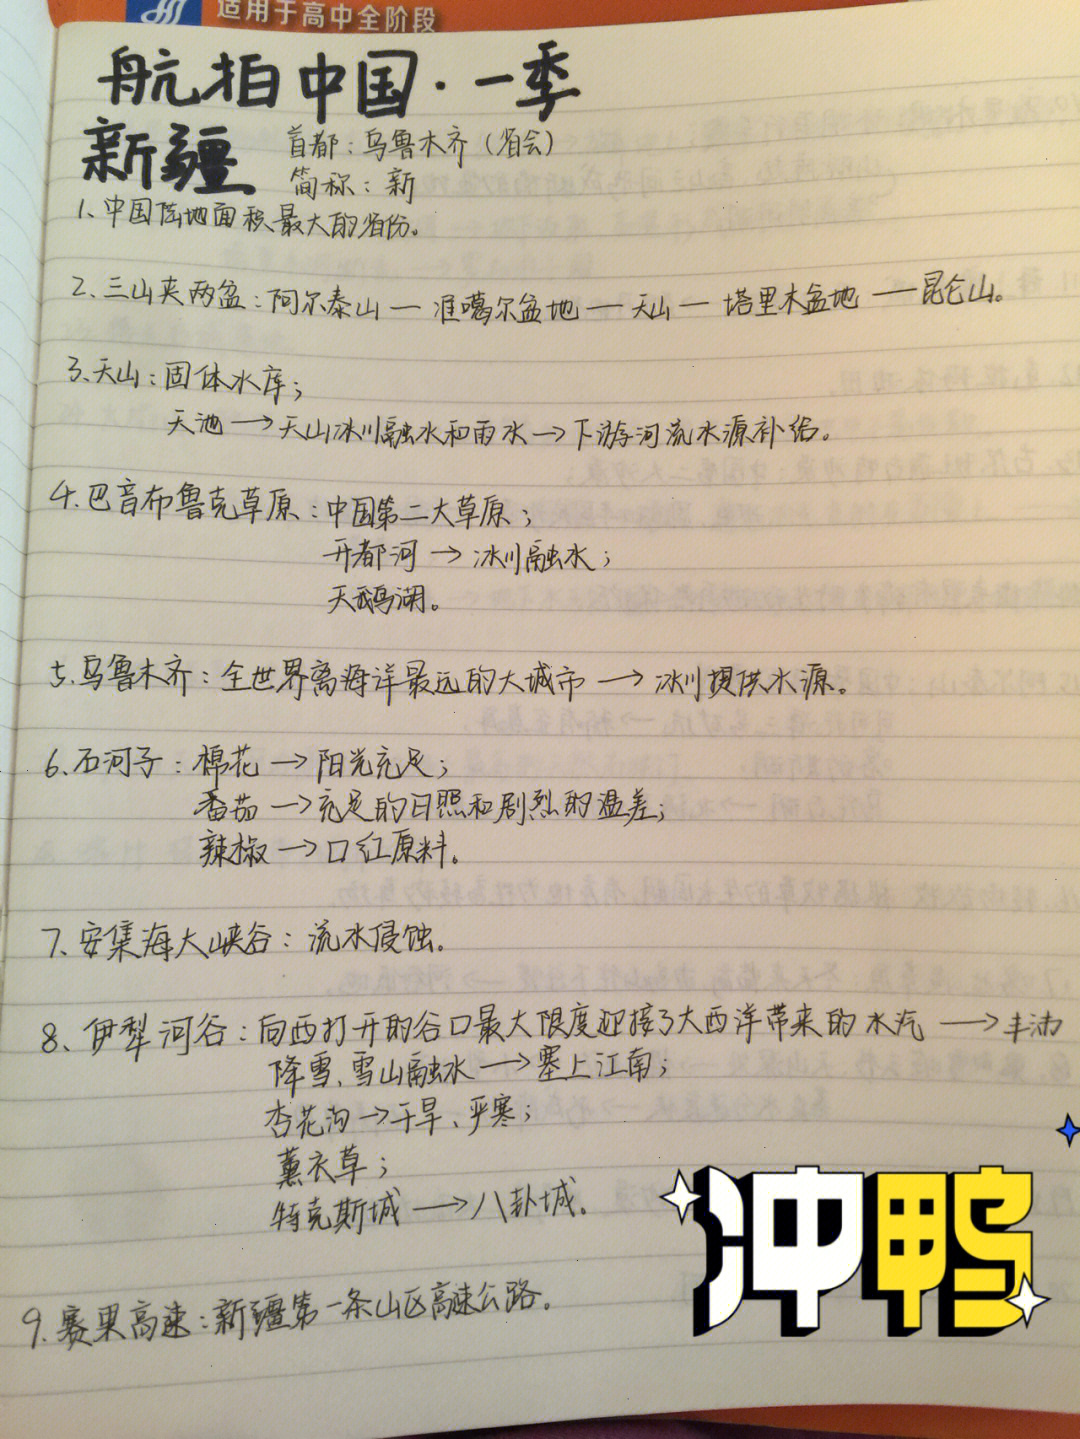 适用于高中全阶段
航拍中国·一季
新疆 首都：乌鲁木齐（省会）
简称：新
1、中国陆地面积最大的省份。
2、三山夹两盆：阿尔泰山—准噶尔盆地—天山—塔里木盆地—昆仑山。
3、天山：固体水库；
天池→天山冰川融水和雨水→下游河流水源补给。
4、巴音布鲁克草原：中国第二大草原；
开都河→冰川融水；
天鹅湖。
5、乌鲁木齐：全世界离海洋最远的大城市→冰川提供水源。
6、石河子：棉花→阳光充足；
番茄→充足的日照和剧烈的温差；
辣椒→口红原料。
7、安集海大峡谷：流水侵蚀。
8、伊犁河谷：向西打开的谷口最大限度迎接了大西洋带来的水汽→丰沛
降雪、雪山融水→塞上江南；
杏花沟→干旱、严寒；
薰衣草；
特克斯城→八卦城。
9、赛果高速：新疆第一条山区高速公路。
冲鸭